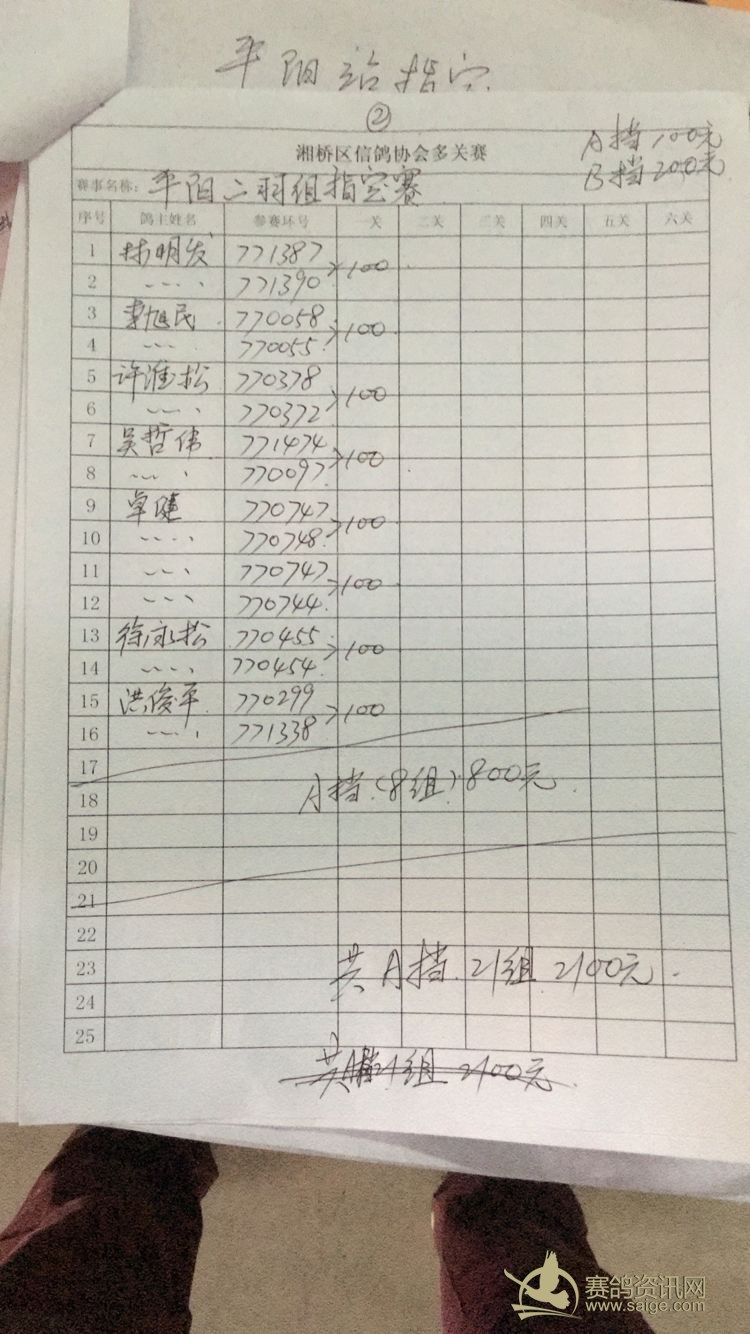 平阳站指定
②
湘桥区信鸽协会多关赛
A挡 100元
B挡 200元
赛事名称: 平阳二羽组指定赛
序号 鸽主姓名 参赛环号 一关 二关 三关 四关 五关 六关
1 林明发 771387
2 771390 >100
3 李旭民 770058
4 770055 >100
5 许淮松 770378
6 770372 >100
7 吴哲伟 771474
8 770097 >100
9 卓健 770747
10 770748 >100
11 770747
12 770744 >100
13 徐永松 770455
14 770454 >100
15 洪俊平 770299
16 771338 >100
17
18 A挡(8组)800元
19
20
21
22
23 共A挡 21组 2100元
24
25
共A挡21组 2100元
赛鸽资讯网
www.saige.com